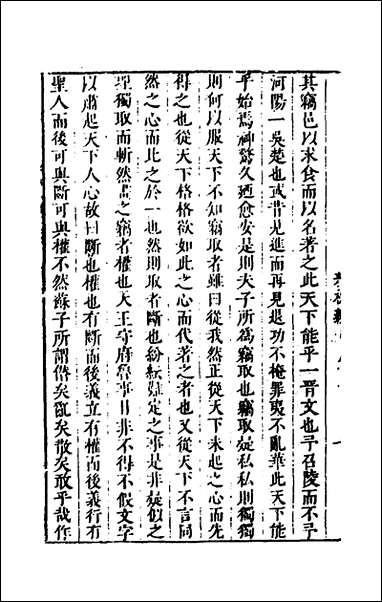 其竊邑以求食而以名著之此天下能乎一晋文也予召陵而不予
河陽一吳楚也或昔見進而再見退功不掩罪夷不亂華此天下能
乎始焉神驚久廼愈安是則夫子所爲竊取也竊取疑私私則獨獨
則何以服天下不知竊取者雖曰從我然正從天下未起之心而先
得之也從天下格格欲如此之心而代著之者也又從天下不言同
然之心而比之於一也然則取者斷也紛紜疑定之事是非疑似之
聖獨取而斬然畫之竊者權也天王守府魯事日非不得不假文字
以肅起天下人心故曰斷也權也有斷而後義立有權而後義行有
聖人而後可與斷可與權不然蘇子所謂僭矣亂矣散矣敢乎哉作